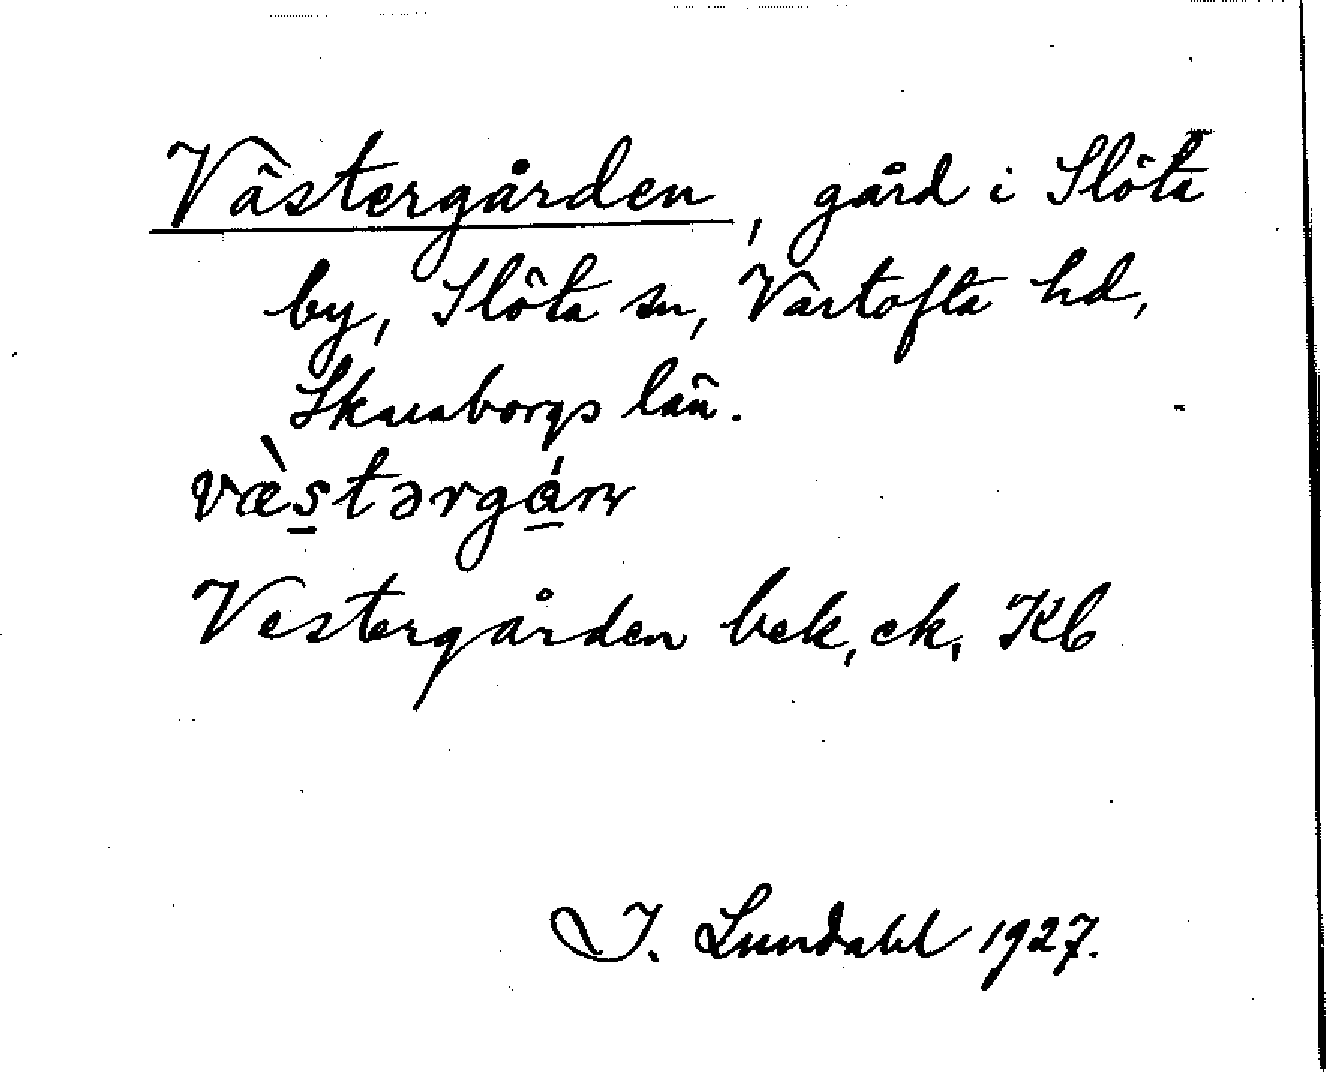 Västergården, gård i Slöta
by, Slöta sn, Vartofta hd,
Skaraborgs län.
væ̀s̲tərgá̲rn
Vestergården bek, ek, Kb
I. Lundahl 1927.